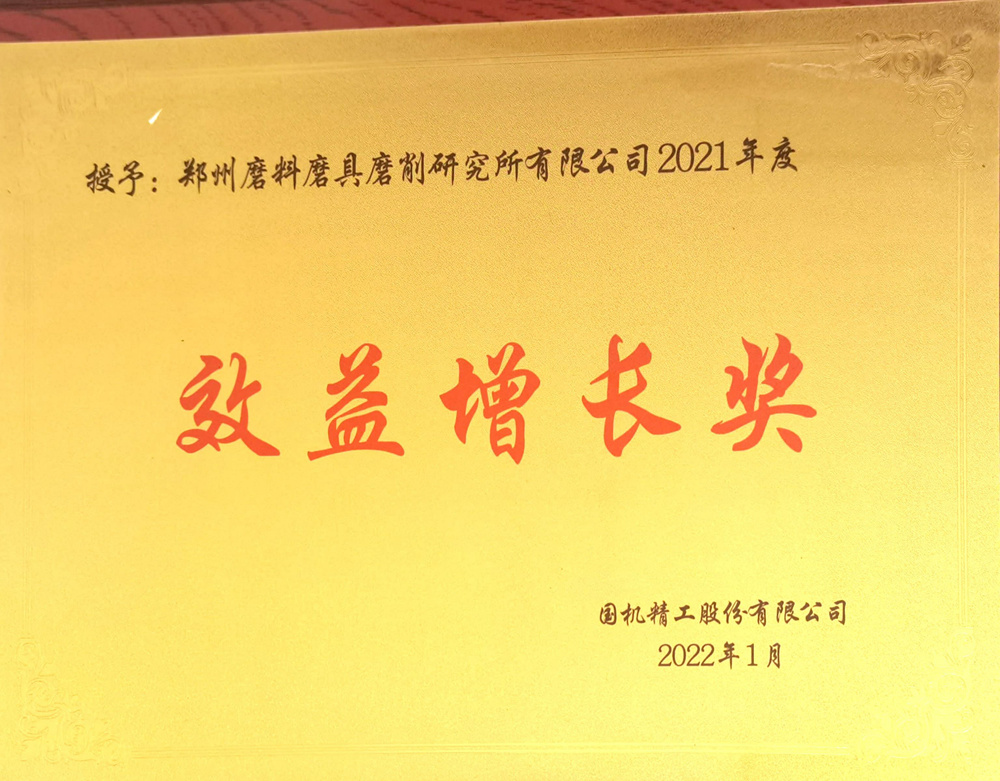 授予：郑州磨料磨具磨削研究所有限公司2021年度
效益增长奖
国机精工股份有限公司
2022年1月